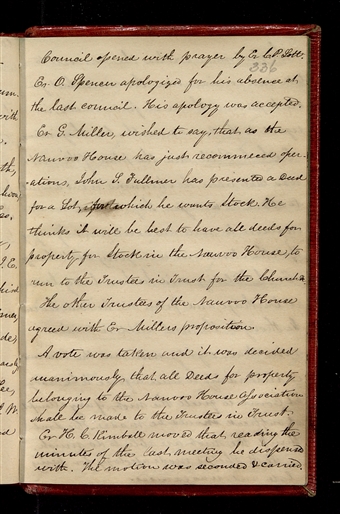 Council opened with prayer by Er C. P. Lott.
336
Er O. Spencer apologized for his absence at
the last council. His apology was accepted.
Er G. Miller, wished to say, that as the
Nauvoo House has just recommenced oper-
ations, John S. Fullmer has presented a Deed
for a Lot, for which he wants Stock. He
thinks it will be best to have all deeds for
property, for Stock in the Nauvoo House, to
run to the Trustee in Trust for the Church.
The other Trustees of the Nauvoo House
agreed with Er Millers proposition.
A vote was taken and it was decided
unanimously, that all Deeds for property
belonging to the Nauvoo House Association
shall be made to the Trustees in Trust.
Er H. C. Kimball moved that reading the
minutes of the last meeting be dispensed
with. The motion was seconded & carried.